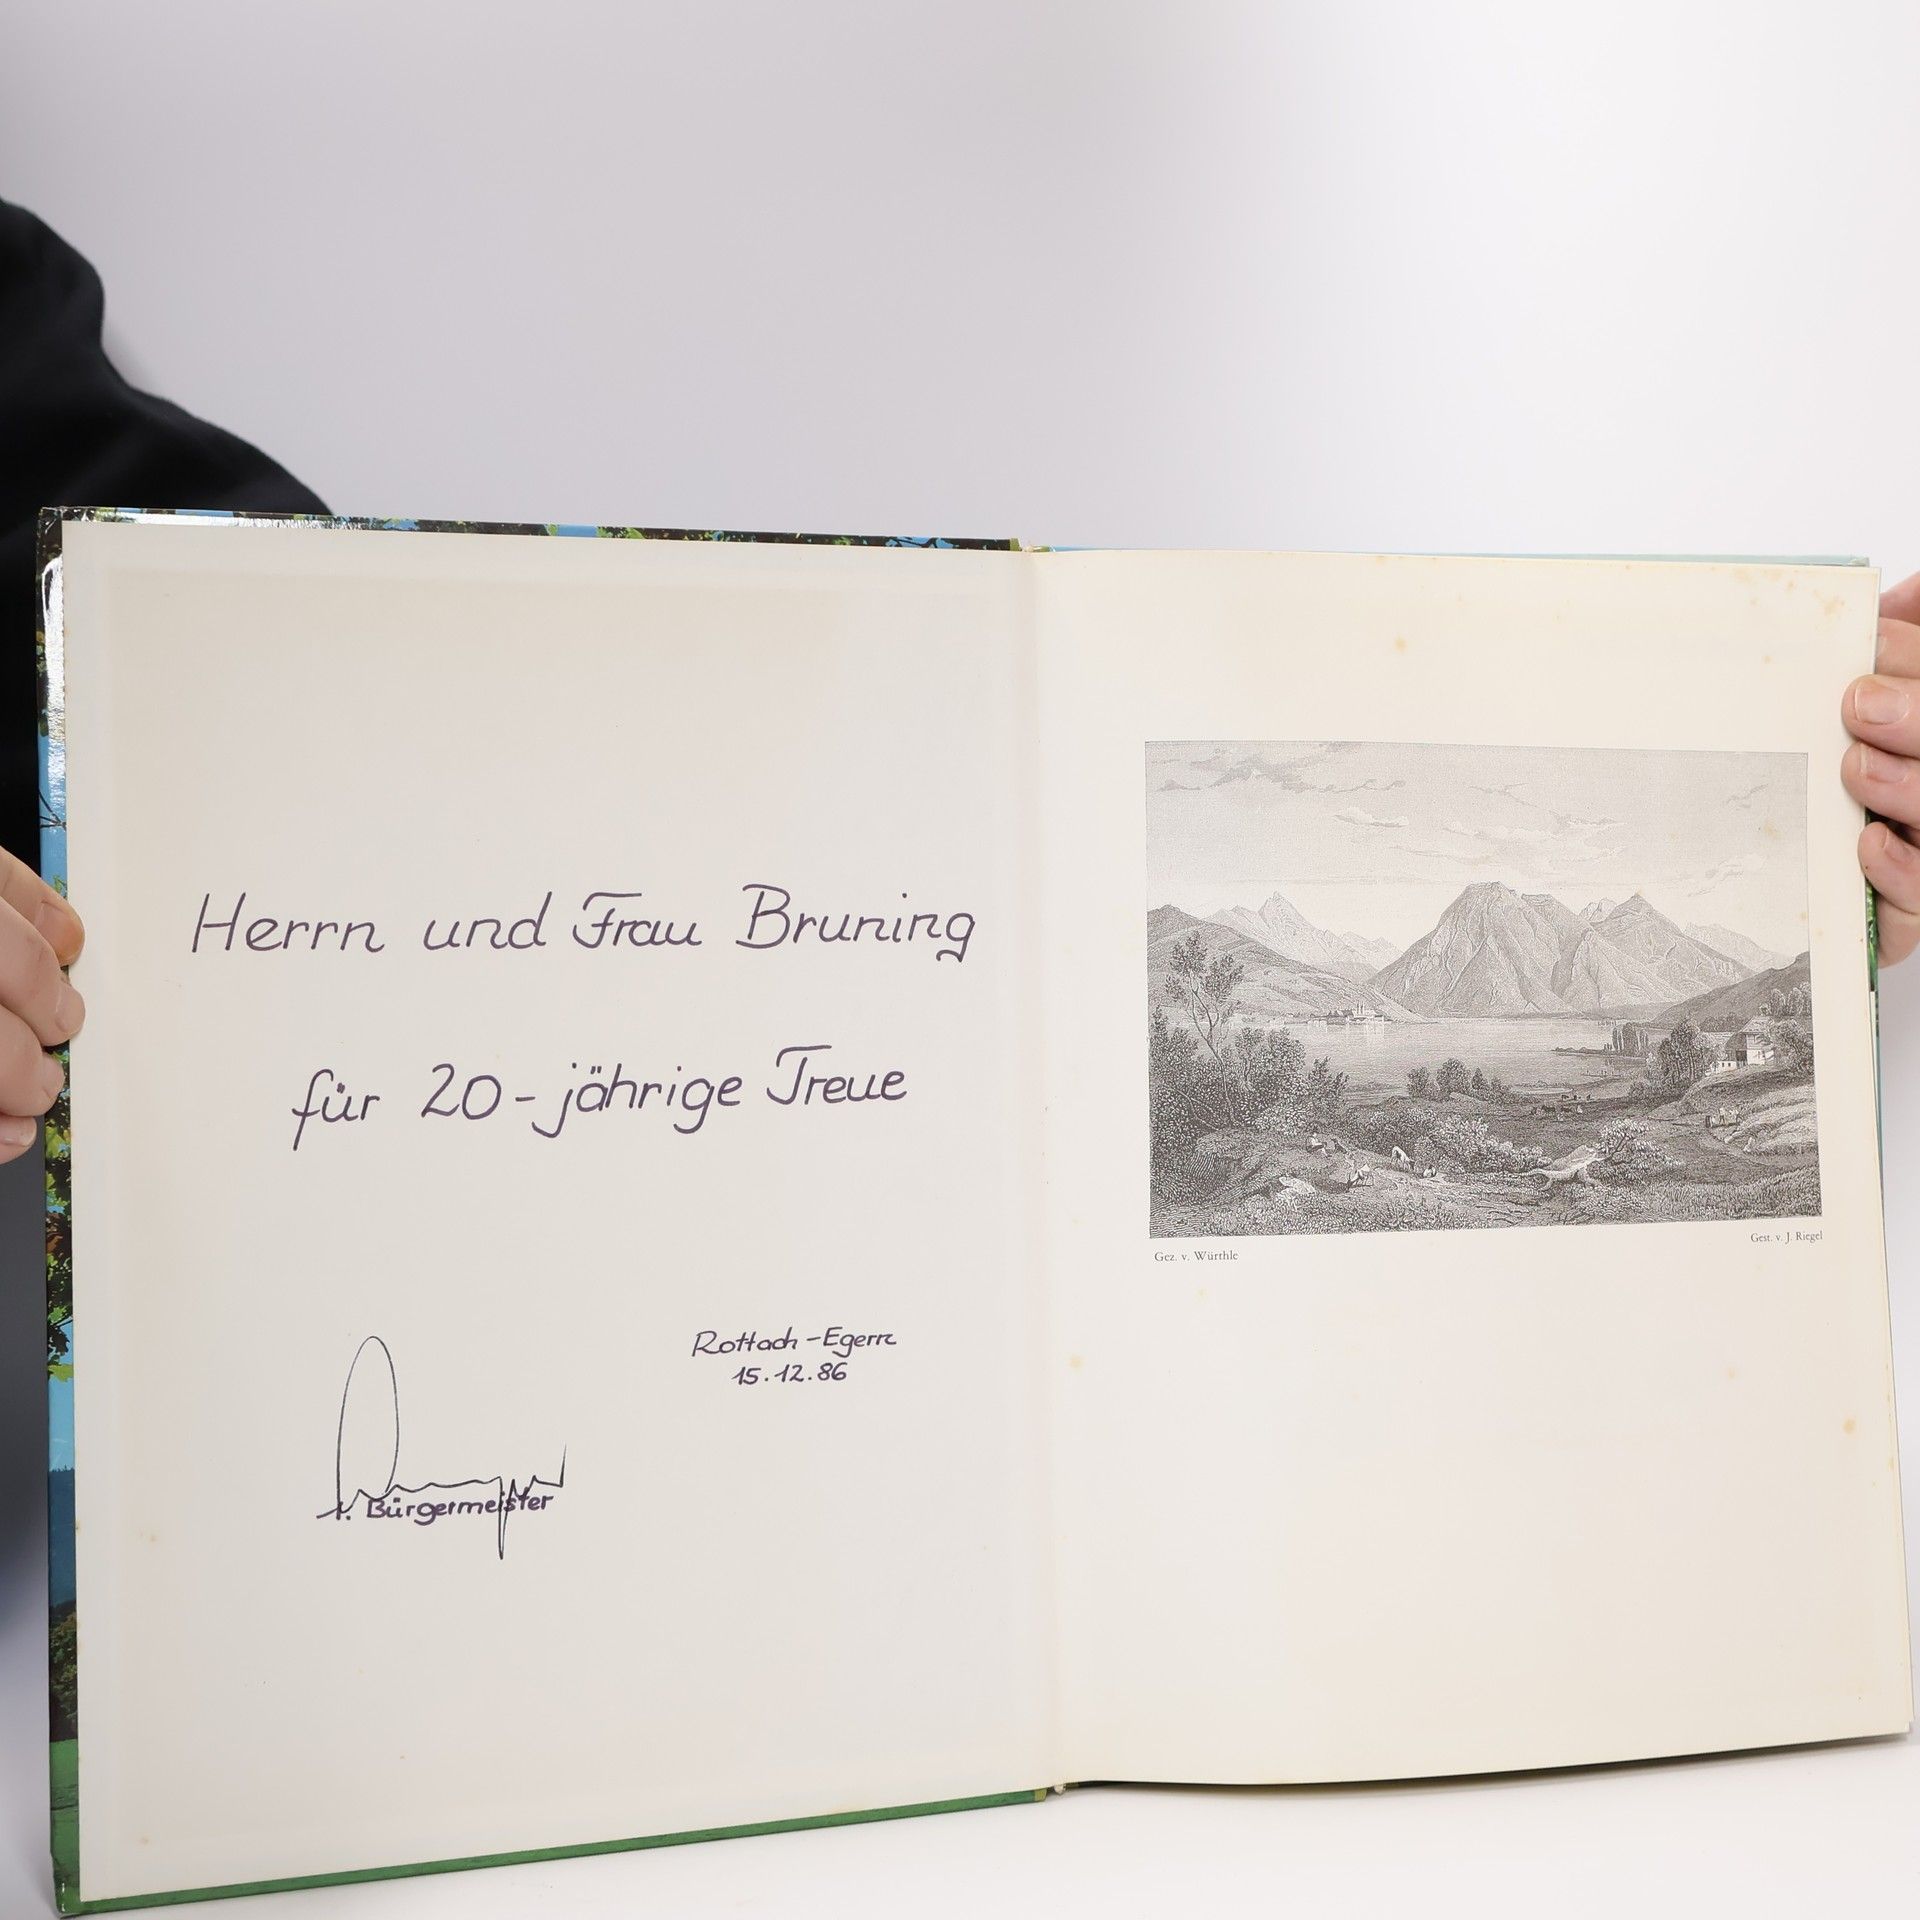 Herrn und Frau Bruning
für 20-jährige Treue
Rottach-Egern
15.12.86
1. Bürgermeister
Gez. v. Würthle
Gest. v. J. Riegel